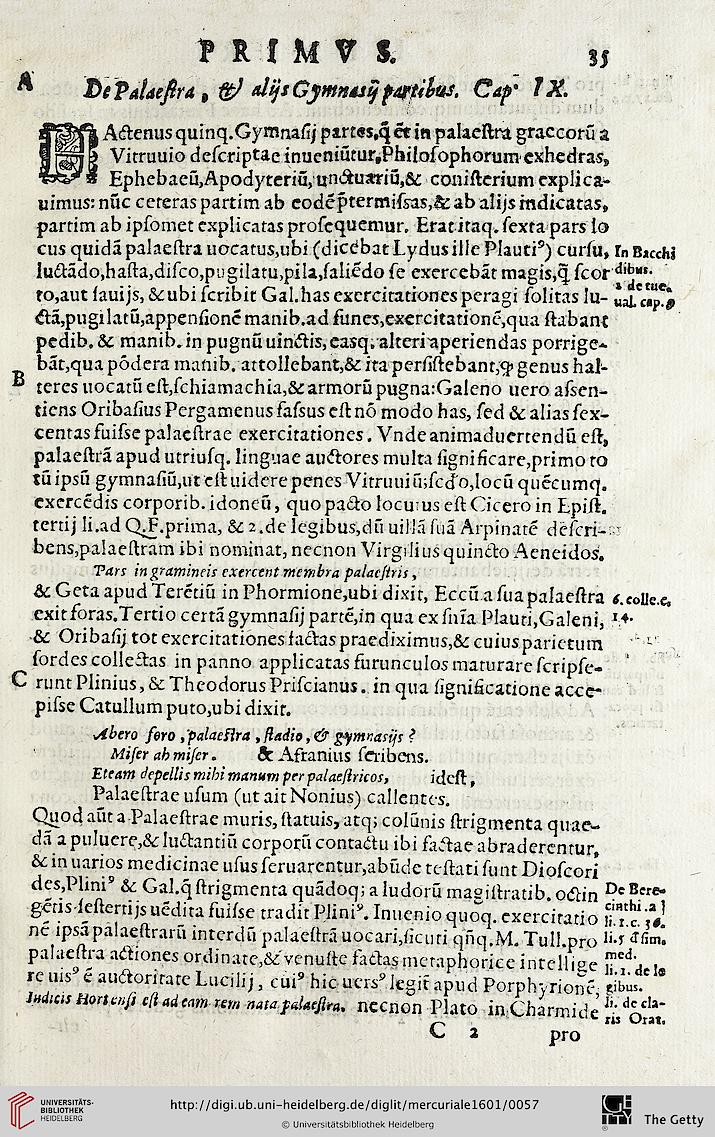 PRIMVS.
35
A
De Palaestra, & alijs Gymnasij partibus. Cap. IX.
HActenus quinq. Gymnasij partes, q̃ et̃ in palaestra graecorũ a
Vitruuio descriptae inueniũtur, Philosophorum exhedras,
Ephebaeũ, Apodyteriũ, unctuariũ, & conisterium explica-
uimus: nũc ceteras partim ab eodẽ p̃termissas, & ab alijs indicatas,
partim ab ipsomet explicatas prosequemur. Erat itaq. sexta pars lo
cus quidã palaestra uocatus, ubi (dicebat Lydus ille Plautiꝰ) cursu,
In Bacchi
luctãdo, hasta, disco, pugilatu, pila, saliẽdo se exercebãt magis, q̃ scor
dibus.
to, aut sauijs, & ubi scribit Gal. has exercitationes peragi solitas lu-
2 de tue.
ual. cap. 9
ctã, pugilatũ, appensionẽ manib. ad funes, exercitationẽ, qua stabant
pedib. & manib. in pugnũ uinctis, easq. alteri aperiendas porrige-
bãt, qua põdera manib. attollebant, & ita persistebant, ꝙ genus hal-
B
teres uocatũ est, schiamachia, & armorũ pugna: Galeno uero assen-
tiens Oribasius Pergamenus fassus est nõ modo has, sed & alias sex-
centas fuisse palaestrae exercitationes. Vnde animaduertendũ est,
palaestrã apud utriusq. linguae auctores multa significare, primo to
tũ ipsũ gymnasiũ, ut est uidere penes Vitruuiũ; scd'o, locũ quẽcumq.
exercẽdis corporib. idoneũ, quo pacto locutus est Cicero in Epist.
tertij li. ad Q. F. prima, & 2. de legibus, dũ uillã suã Arpinatẽ descri-
bens, palaestram ibi nominat, necnon Virgilius quincto Aeneidos.
Pars in gramineis exercent membra palaestris,
& Geta apud Terẽtiũ in Phormione, ubi dixit, Eccũ a sua palaestra
6. colle. c.
exit foras. Tertio certã gymnasij partẽ, in qua ex sñia Plauti, Galeni,
14.
& Oribasij tot exercitationes factas praediximus, & cuius parietum
sordes collectas in panno applicatas furunculos maturare scripse-
C
runt Plinius, & Theodorus Priscianus. in qua significatione acce-
pisse Catullum puto, ubi dixit.
Abero foro, palaestra, stadio, & gymnasijs?
Miser ah miser. & Afranius scribens.
Eteam depellis mihi manum per palaestricos, idest,
Palaestrae usum (ut ait Nonius) callentes.
Quod aũt a Palaestrae muris, statuis, atq; colũnis strigmenta quae-
dã a puluere, & luctantiũ corporũ contactu ibi factae abraderentur,
& in uarios medicinae usus seruarentur, abũde testati sunt Dioscori
des, Pliniꝰ & Gal. q̃ strigmenta quãdoq; a ludorũ magistratib. octin
De Bere-
gẽtis sestertijs uẽdita fuisse tradit Pliniꝰ. Inuenio quoq. exercitatio
cinthi. a]
li. 1. c. 36.
nẽ ipsã palaestrarũ interdũ palaestrã uocari, sicuti qñq. M. Tull. pro
li. 5 d' sim.
palaestra actiones ordinate, & venuste factas metaphorice intellige
med.
li. 1. de le
re uisꝰ ẽ auctoritate Lucilij, cuiꝰ hic uersꝰ legit̃ apud Porphyrionẽ,
gibus.
Iudicis Hortensi est ad eam rem nata palaestra. necnon Plato in Charmide
li. de cla-
ris Orat.
C 2
pro
UNIVERSITÄTS-
BIBLIOTHEK
HEIDELBERG
http://digi.ub.uni-heidelberg.de/diglit/mercuriale1601/0057
© Universitätsbibliothek Heidelberg
GETTY
The Getty